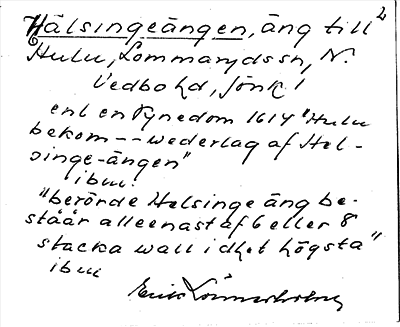 Hälsingeängen, äng till 2
Hulu, Lommarydssn, N.
Vedbo hd, Jönk l
enl en synedom 1614 "Hulu
bekom -- wederlag af Hel-
singe-ängen"
ibm.
"berörde Helsinge äng be-
stäår alleenast af 6 eller 8
stacka wall i dhet högsta"
ibm
Erik